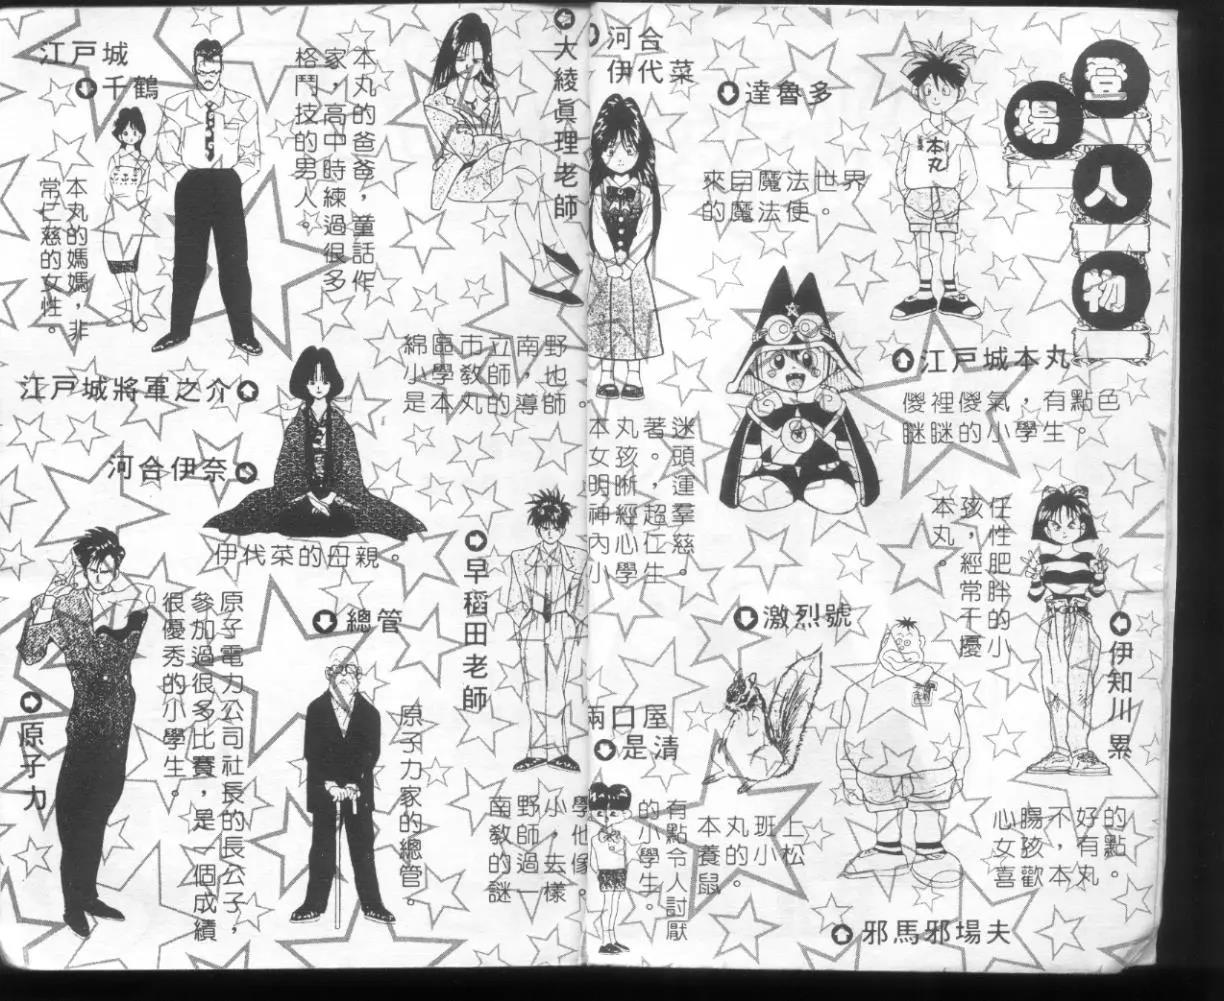 登場人物
江戶城本丸
傻裡傻氣，有點色
瞇瞇的小學生。
達魯多
來自魔法世界
的魔法使。
河合
伊代菜
本丸著迷
女孩。頭
明晰，運
神經超羣
內心仁慈
小學生。
伊知川累
心腸不好的
女孩，有點
喜歡本丸。
任性肥胖的小
孩，經常干擾
本丸。
邪馬邪場夫
激烈號
本丸班上
養的小松
鼠。
兩口屋
是清
有點令人討厭
的小學生。
大綾眞理老師
綿區市立南野
小學教師，也
是本丸的導師。
本丸的爸爸，童話作
家，高中時練過很多
格鬥技的男人。
江戶城
千鶴
本丸的媽媽，非
常仁慈的女性。
江戶城將軍之介
河合伊奈
伊代菜的母親。
早稻田老師
南野小學
教師，他
的過去像
謎一樣。
總管
原子力家的總管。
原子力
原子電力公司社長的長公子，
參加過很多比賽，是一個成績
很優秀的小學生。